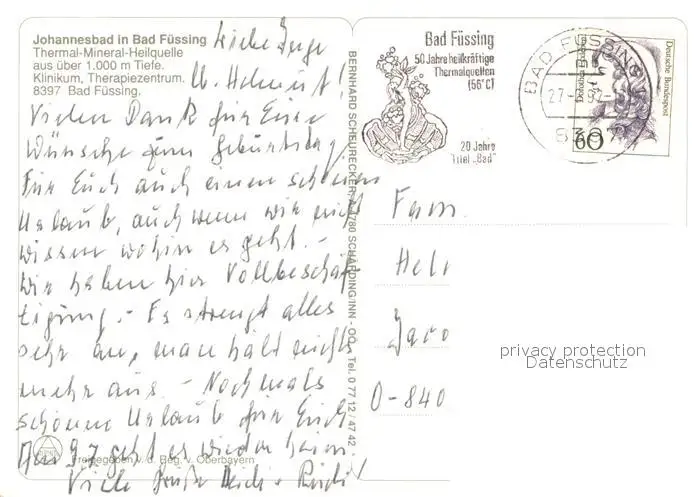 Johannesbad in Bad Füssing
Thermal-Mineral-Heilquelle
aus über 1.000 m Tiefe.
Klinikum, Therapiezentrum.
8397 Bad Füssing.
Liebe Inge
u. Helmut!
Vielen Dank für Eure
Wünsche zum Geburtstag!
Für Euch auch einen schönen
Urlaub, auch wenn wir nicht
wissen wohin es geht. -
Wir haben hier Vollbeschäf-
tigung. - Es strengt alles
sehr an, man hält nichts
mehr aus. - Nochmals
schönen Urlaub für Euch
Am 9.7. geht es wieder heim.
Viele Grüße Heidi + Rudi!
Freigegeben v. d. Reg. v. Oberbayern
BERNHARD SCHEURECKER, A-4780 SCHÄRDING/INN - OÖ., Tel. 0 77 12 / 47 42
Bad Füssing
50 Jahre heilkräftige
Thermalquellen
(56°C)
20 Jahre
Titel „Bad"
BAD FÜSSING
Deutsche Bundespost
60
Fam.
Hel
O-840
privacy protection
Datenschutz